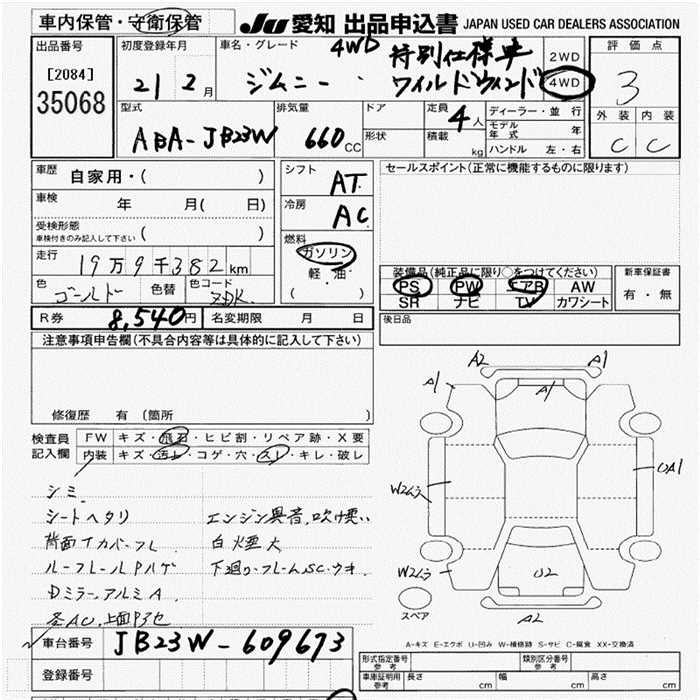 車内保管・守衛保管 JU 愛知 出品申込書 JAPAN USED CAR DEALERS ASSOCIATION
出品番号 [2084] 35068
初度登録年月 21 2月
車名・グレード 4WD 特別仕様車
ジムニー ワイルドウインド
2WD
4WD
評価点 3
外装 内装
C C
型式 ABA-JB23W
排気量 660cc
ドア 形状
定員 4人
積載 kg
ディーラー・並行
モデル年式 年
ハンドル 左・右
車歴 自家用・( )
車検 年 月( 日)
受検形態
車検付きのみ記入して下さい
走行 19万9千382km
色 ゴールド 色替 色コード ZDK
シフト AT
冷房 AC
燃料 ガソリン
軽・油
( )
セールスポイント(正常に機能するものに限ります)
装備品(純正品に限り○をつけてください)
PS PW エアB AW
SR ナビ TV カワシート
新車保証書
有・無
R券 8,540円 名変期限 月 日
後日品
注意事項申告欄(不具合内容等は具体的に記入して下さい)
修復歴 有(箇所 )
検査員記入欄
FW キズ・飛石・ヒビ割・リペア跡・X要
内装 キズ・汚れ・コゲ・穴・スレ・キレ・破レ
シミ
シートヘタリ エンジン異音、吹け悪い
背面タイヤカバーフレ 白煙大
ルーフレールPハゲ 下廻り・フレームSC・サキ
Dミラー、アルミA
A2 A1
A1 A1
W2ムラ UA1
W2ムラ U2
スペア A2
A-キズ E-エクボ U-凹み W-補修跡 S-サビ C-腐食 XX-交換済
車台番号 JB23W-609673
登録番号
形式指定番号 参考
類別区分番号 参考
車庫証明用 参考 長さ cm 幅 cm 高さ cm